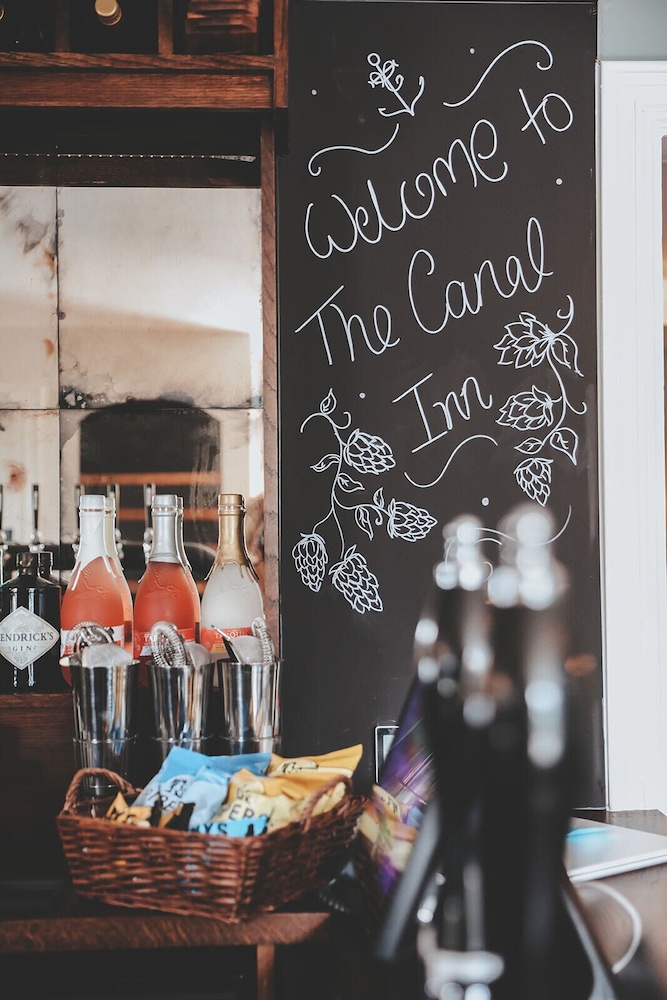 Welcome to
The Canal
Inn
ENDRICK'S
GIN